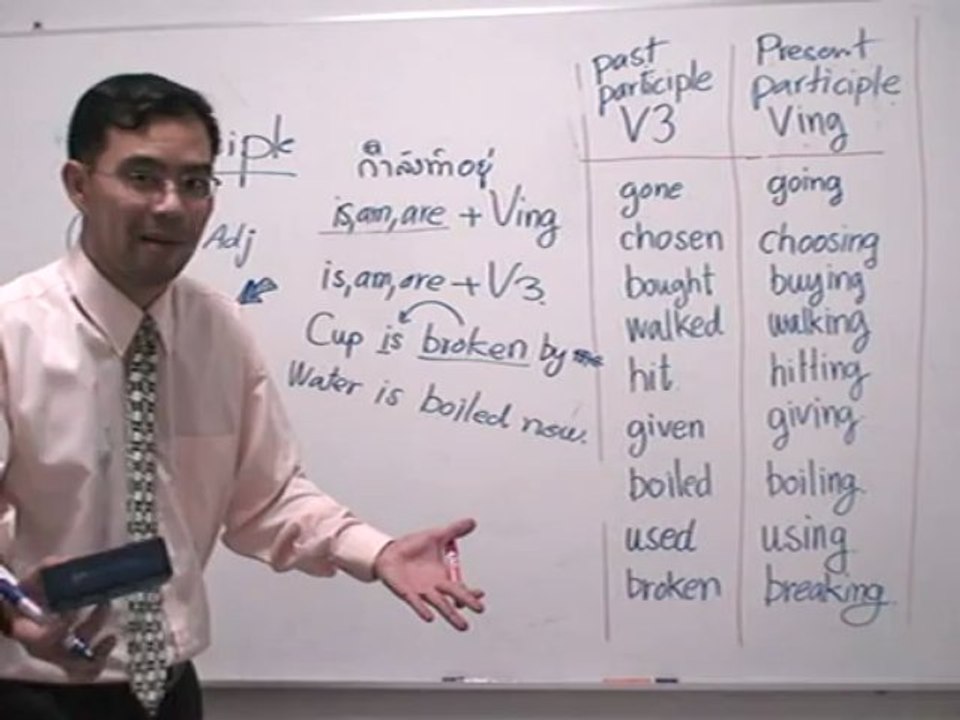 Adj
กำลังทำอยู่
is, am, are + Ving
is, am, are + V3
Cup is broken by
Water is boiled now.
past participle V3 | Present participle Ving
gone | going
chosen | choosing
bought | buying
walked | walking
hit | hitting
given | giving
boiled | boiling
used | using
broken | breaking